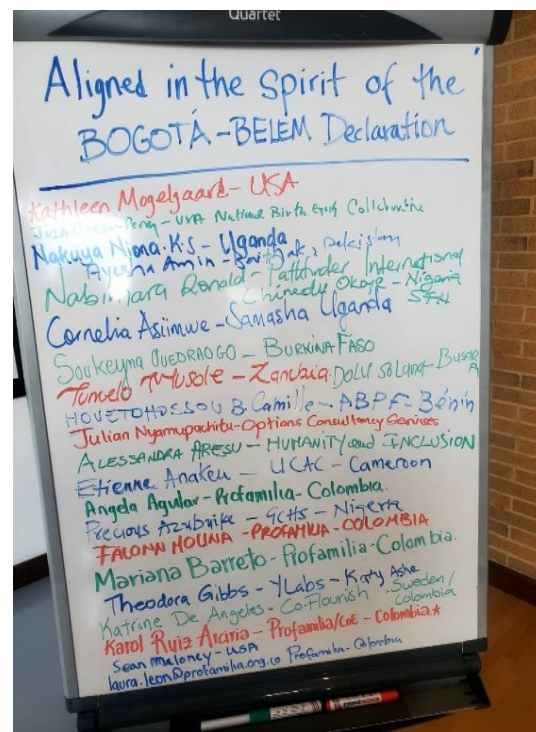 Quartet
Aligned in the spirit of the
BOGOTÁ-BELEM Declaration
Kathleen Mogelgaard - USA
National Birth Equity Collaborative
Nakuya Niona K.S - Uganda
Ayusha Amin -
Nabimara Ronald - Pathfinder International
Chinedu Okoye - Nigeria
Cornelia Asiimwe - Samasha Uganda
Soukeyna OUEDRAOGO - BURKINA FASO
- Zambia
HOUETOHOSSOU B. Camille - ABPF - Bénin
Julian Nyamupachitu - Options Consultancy Services
ALESSANDRA ARESU - HUMANITY and INCLUSION
Etienne Anakeu - UCAC - Cameroon
Angela Aguilar - Profamilia - Colombia.
Precious Azubuike - GCHS - Nigeria
MOLINA - PROFAMILIA - COLOMBIA
Mariana Barreto - Profamilia - Colombia.
Theodora Gibbs - YLabs - Katy Ashe
Katrine De Angeles - Co-Flourish - Sweden/
Colombia
Karol Ruiz - Profamilia/CoE - Colombia.*
Sean Maloney - USA
laura.leon@profamilia.org.co Profamilia - Colombia